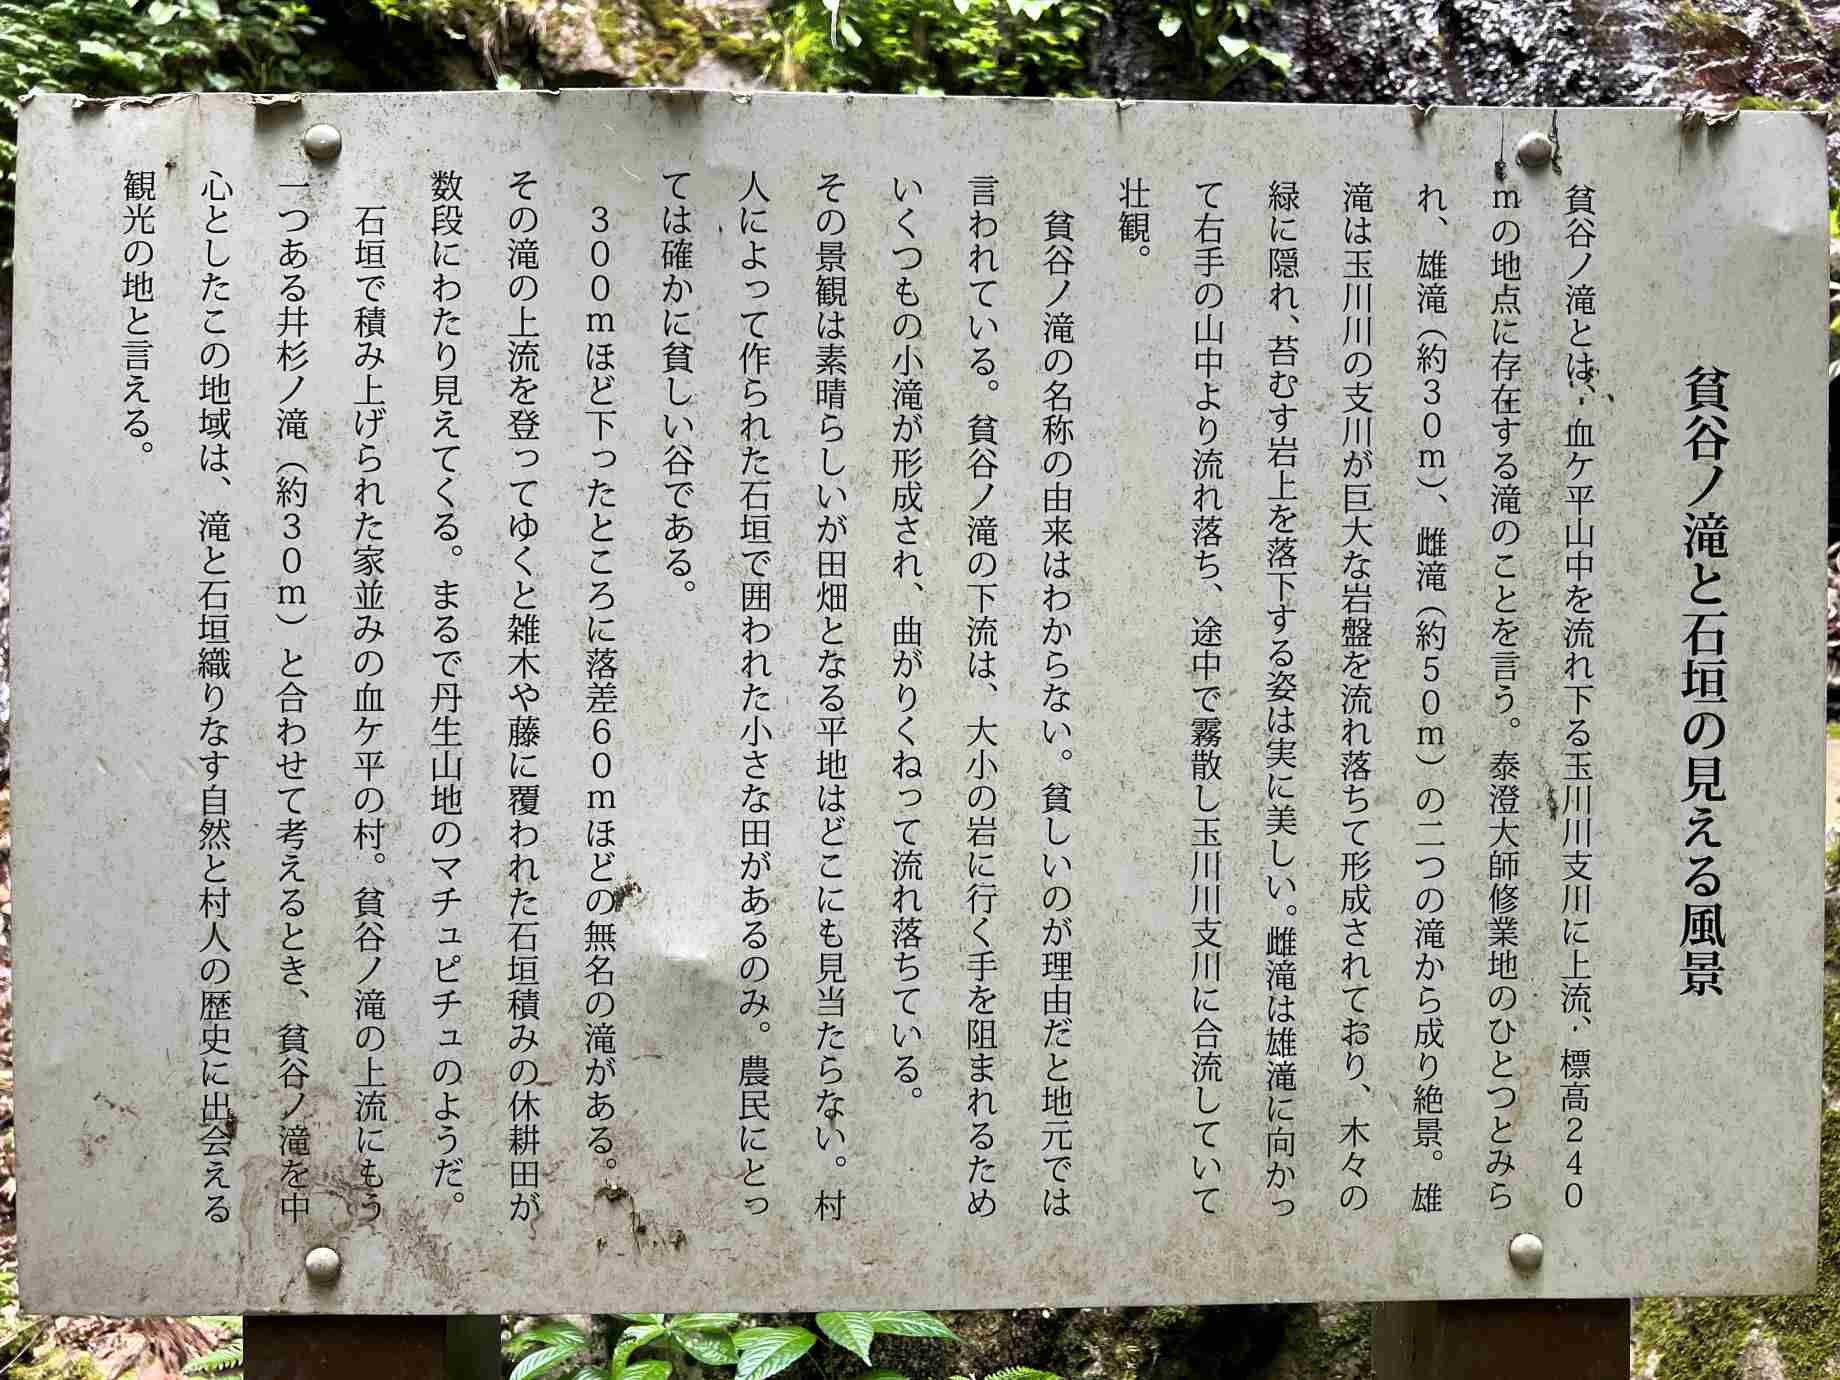 貧谷ノ滝と石垣の見える風景
貧谷ノ滝とは、血ケ平山中を流れ下る玉川川支川に上流、標高２４０
ｍの地点に存在する滝のことを言う。泰澄大師修業地のひとつとみら
れ、雄滝（約３０ｍ）、雌滝（約５０ｍ）の二つの滝から成り絶景。雄
滝は玉川川の支川が巨大な岩盤を流れ落ちて形成されており、木々の
緑に隠れ、苔むす岩上を落下する姿は実に美しい。雌滝は雄滝に向かっ
て右手の山中より流れ落ち、途中で霧散し玉川川支川に合流していて
壮観。
貧谷ノ滝の名称の由来はわからない。貧しいのが理由だと地元では
言われている。貧谷ノ滝の下流は、大小の岩に行く手を阻まれるため
いくつもの小滝が形成され、曲がりくねって流れ落ちている。
その景観は素晴らしいが田畑となる平地はどこにも見当たらない。村
人によって作られた石垣で囲われた小さな田があるのみ。農民にとっ
ては確かに貧しい谷である。
３００ｍほど下ったところに落差６０ｍほどの無名の滝がある。
その滝の上流を登ってゆくと雑木や藤に覆われた石垣積みの休耕田が
数段にわたり見えてくる。まるで丹生山地のマチュピチュのようだ。
石垣で積み上げられた家並みの血ケ平の村。貧谷ノ滝の上流にもう
一つある井杉ノ滝（約３０ｍ）と合わせて考えるとき、貧谷ノ滝を中
心としたこの地域は、滝と石垣織りなす自然と村人の歴史に出会える
観光の地と言える。